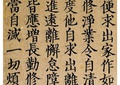 便求出家作如
修淨業令自清
度他自求出離
進遠離懈怠障
皆應增長勤修
當自滅一切煩